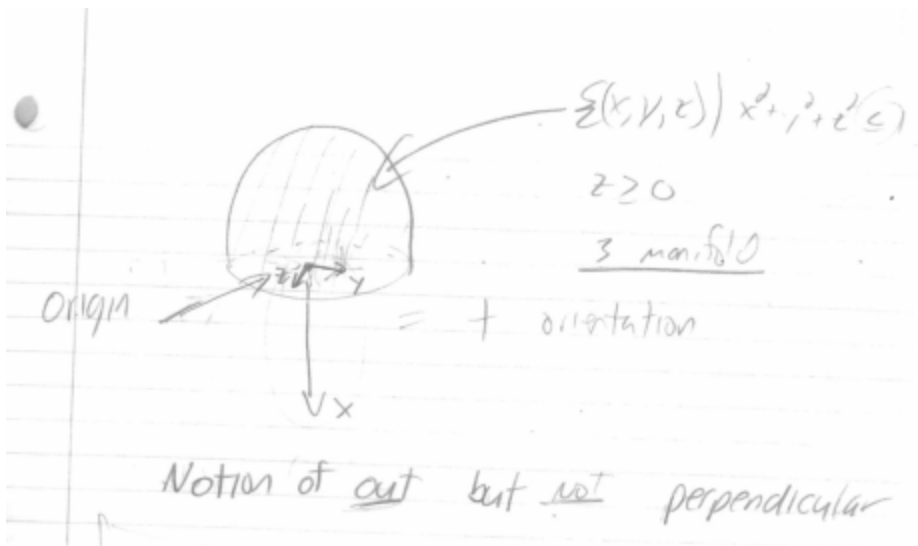 {(x,y,z) | x²+y²+z² ≤ 1
z ≥ 0
3 manifold
z
y
Origin
= + orientation
x
Notion of out but not perpendicular